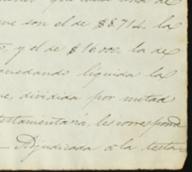 que son el de $8.714 la
y el de $16.000 la de
quedando liquida la
que, dividida por mitad
testamentaria, les corresponde
Adjudicada a la testa